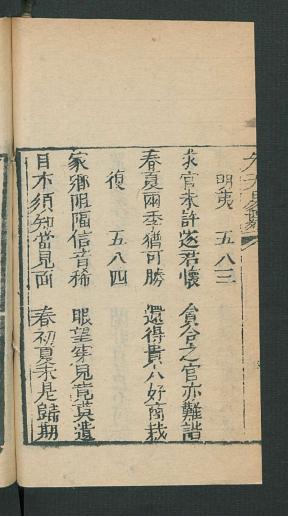 明夷 五八三
求官未許遂君懷 貪谷之官亦難諧
春夏兩季猶可勝 還得貴人好商裁
復 五八四
家鄉阻隔信音稀 眼望 見竟莫遺
目不須知當見面 春初夏末是歸期